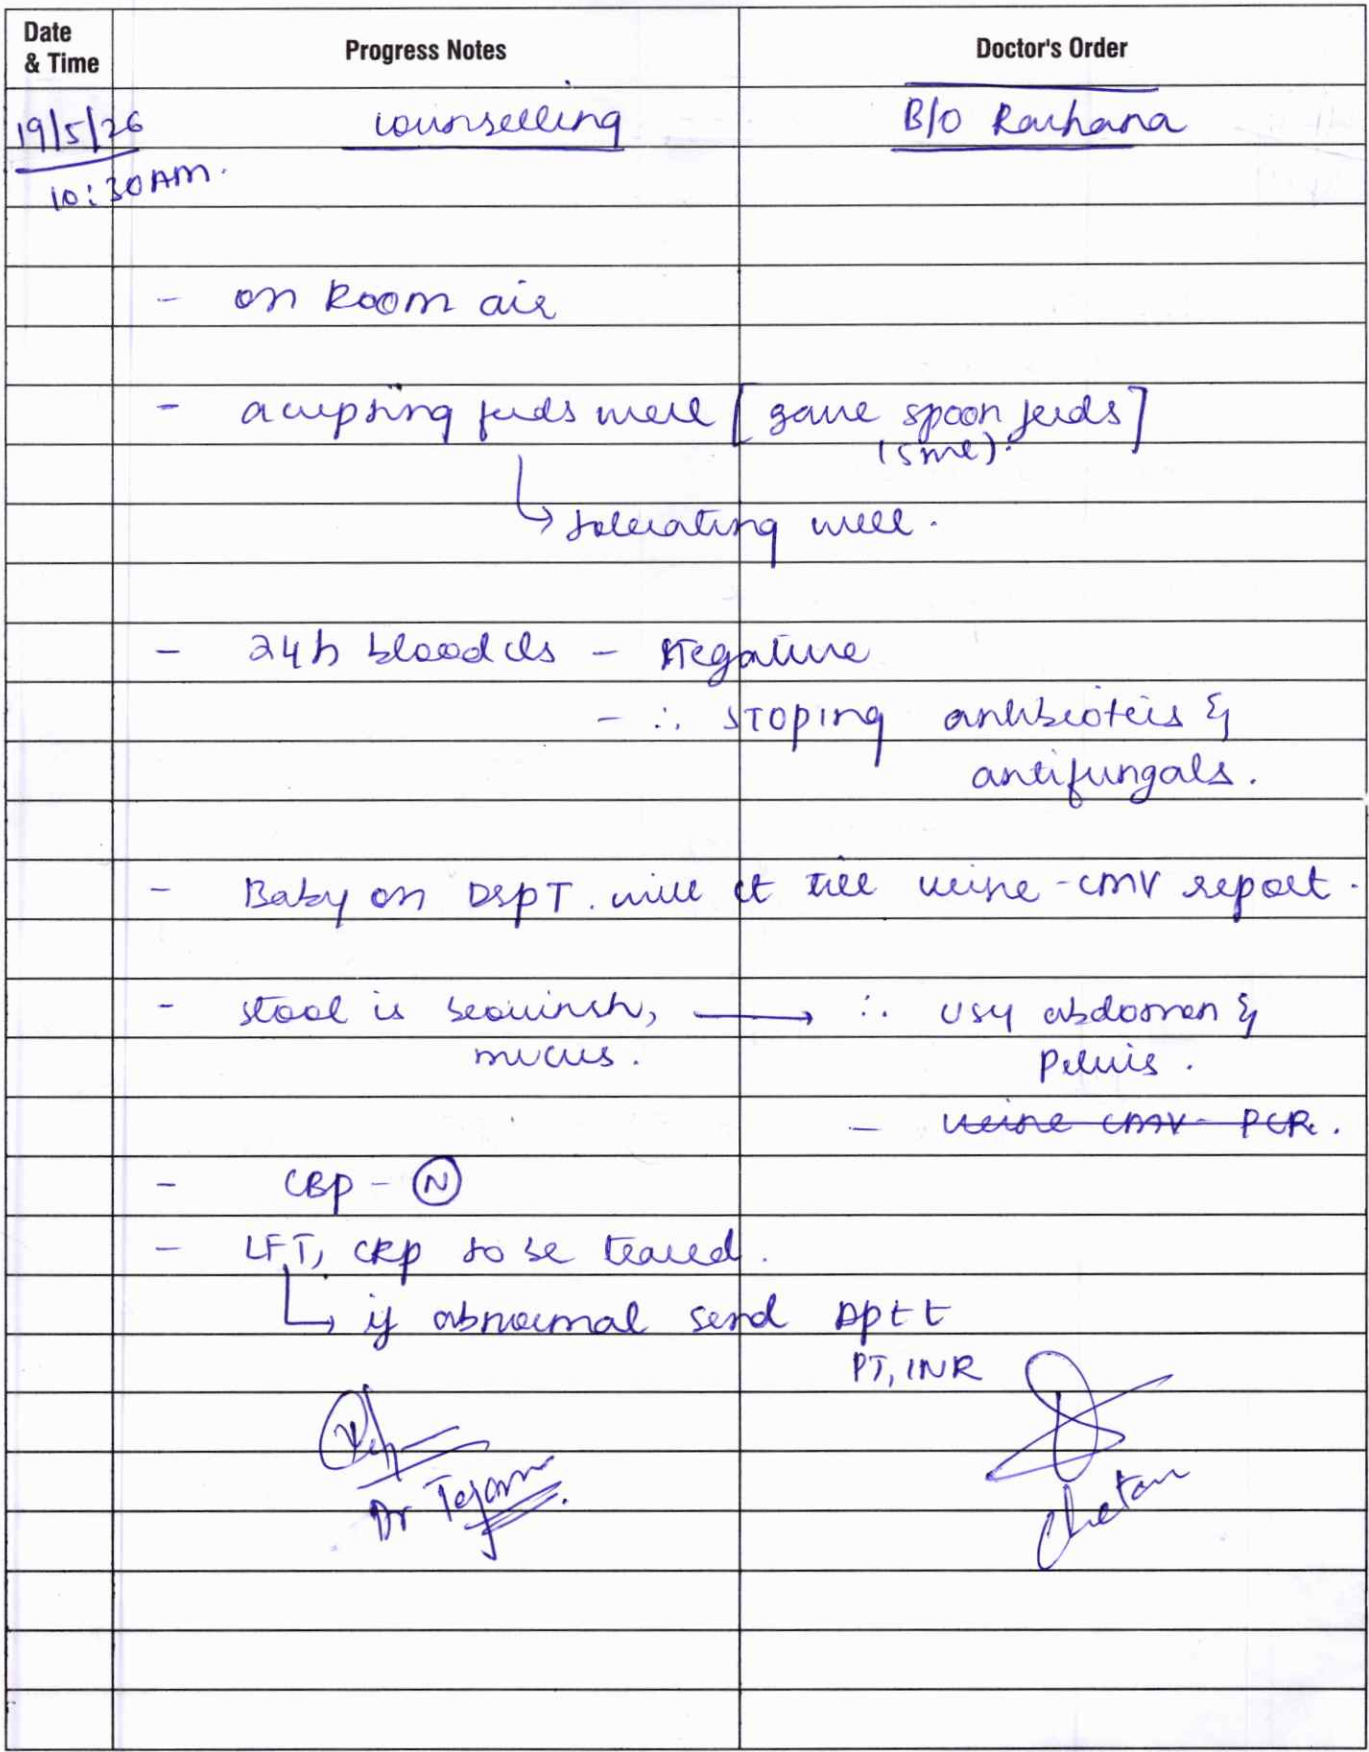 Date & Time Progress Notes Doctor's Order
19/5/26 counselling B/O Raihana
10:30 AM.
- on Room air
- accepting feeds well [gave spoon feeds]
(5ml).
↳ tolerating well.
- 24h blood c/s - Negative
- ∴ stoping antibiotics &
antifungals.
- Baby on DSPT. will ct till urine - CMV report.
- stool is brownish, → ∴ USG abdomen &
mucus. Pelvis.
- urine CMV - PCR.
- CBP - (N)
- LFT, CRP to be traced.
↳ if abnormal send Aptt
PT, INR
Dr
Chetan